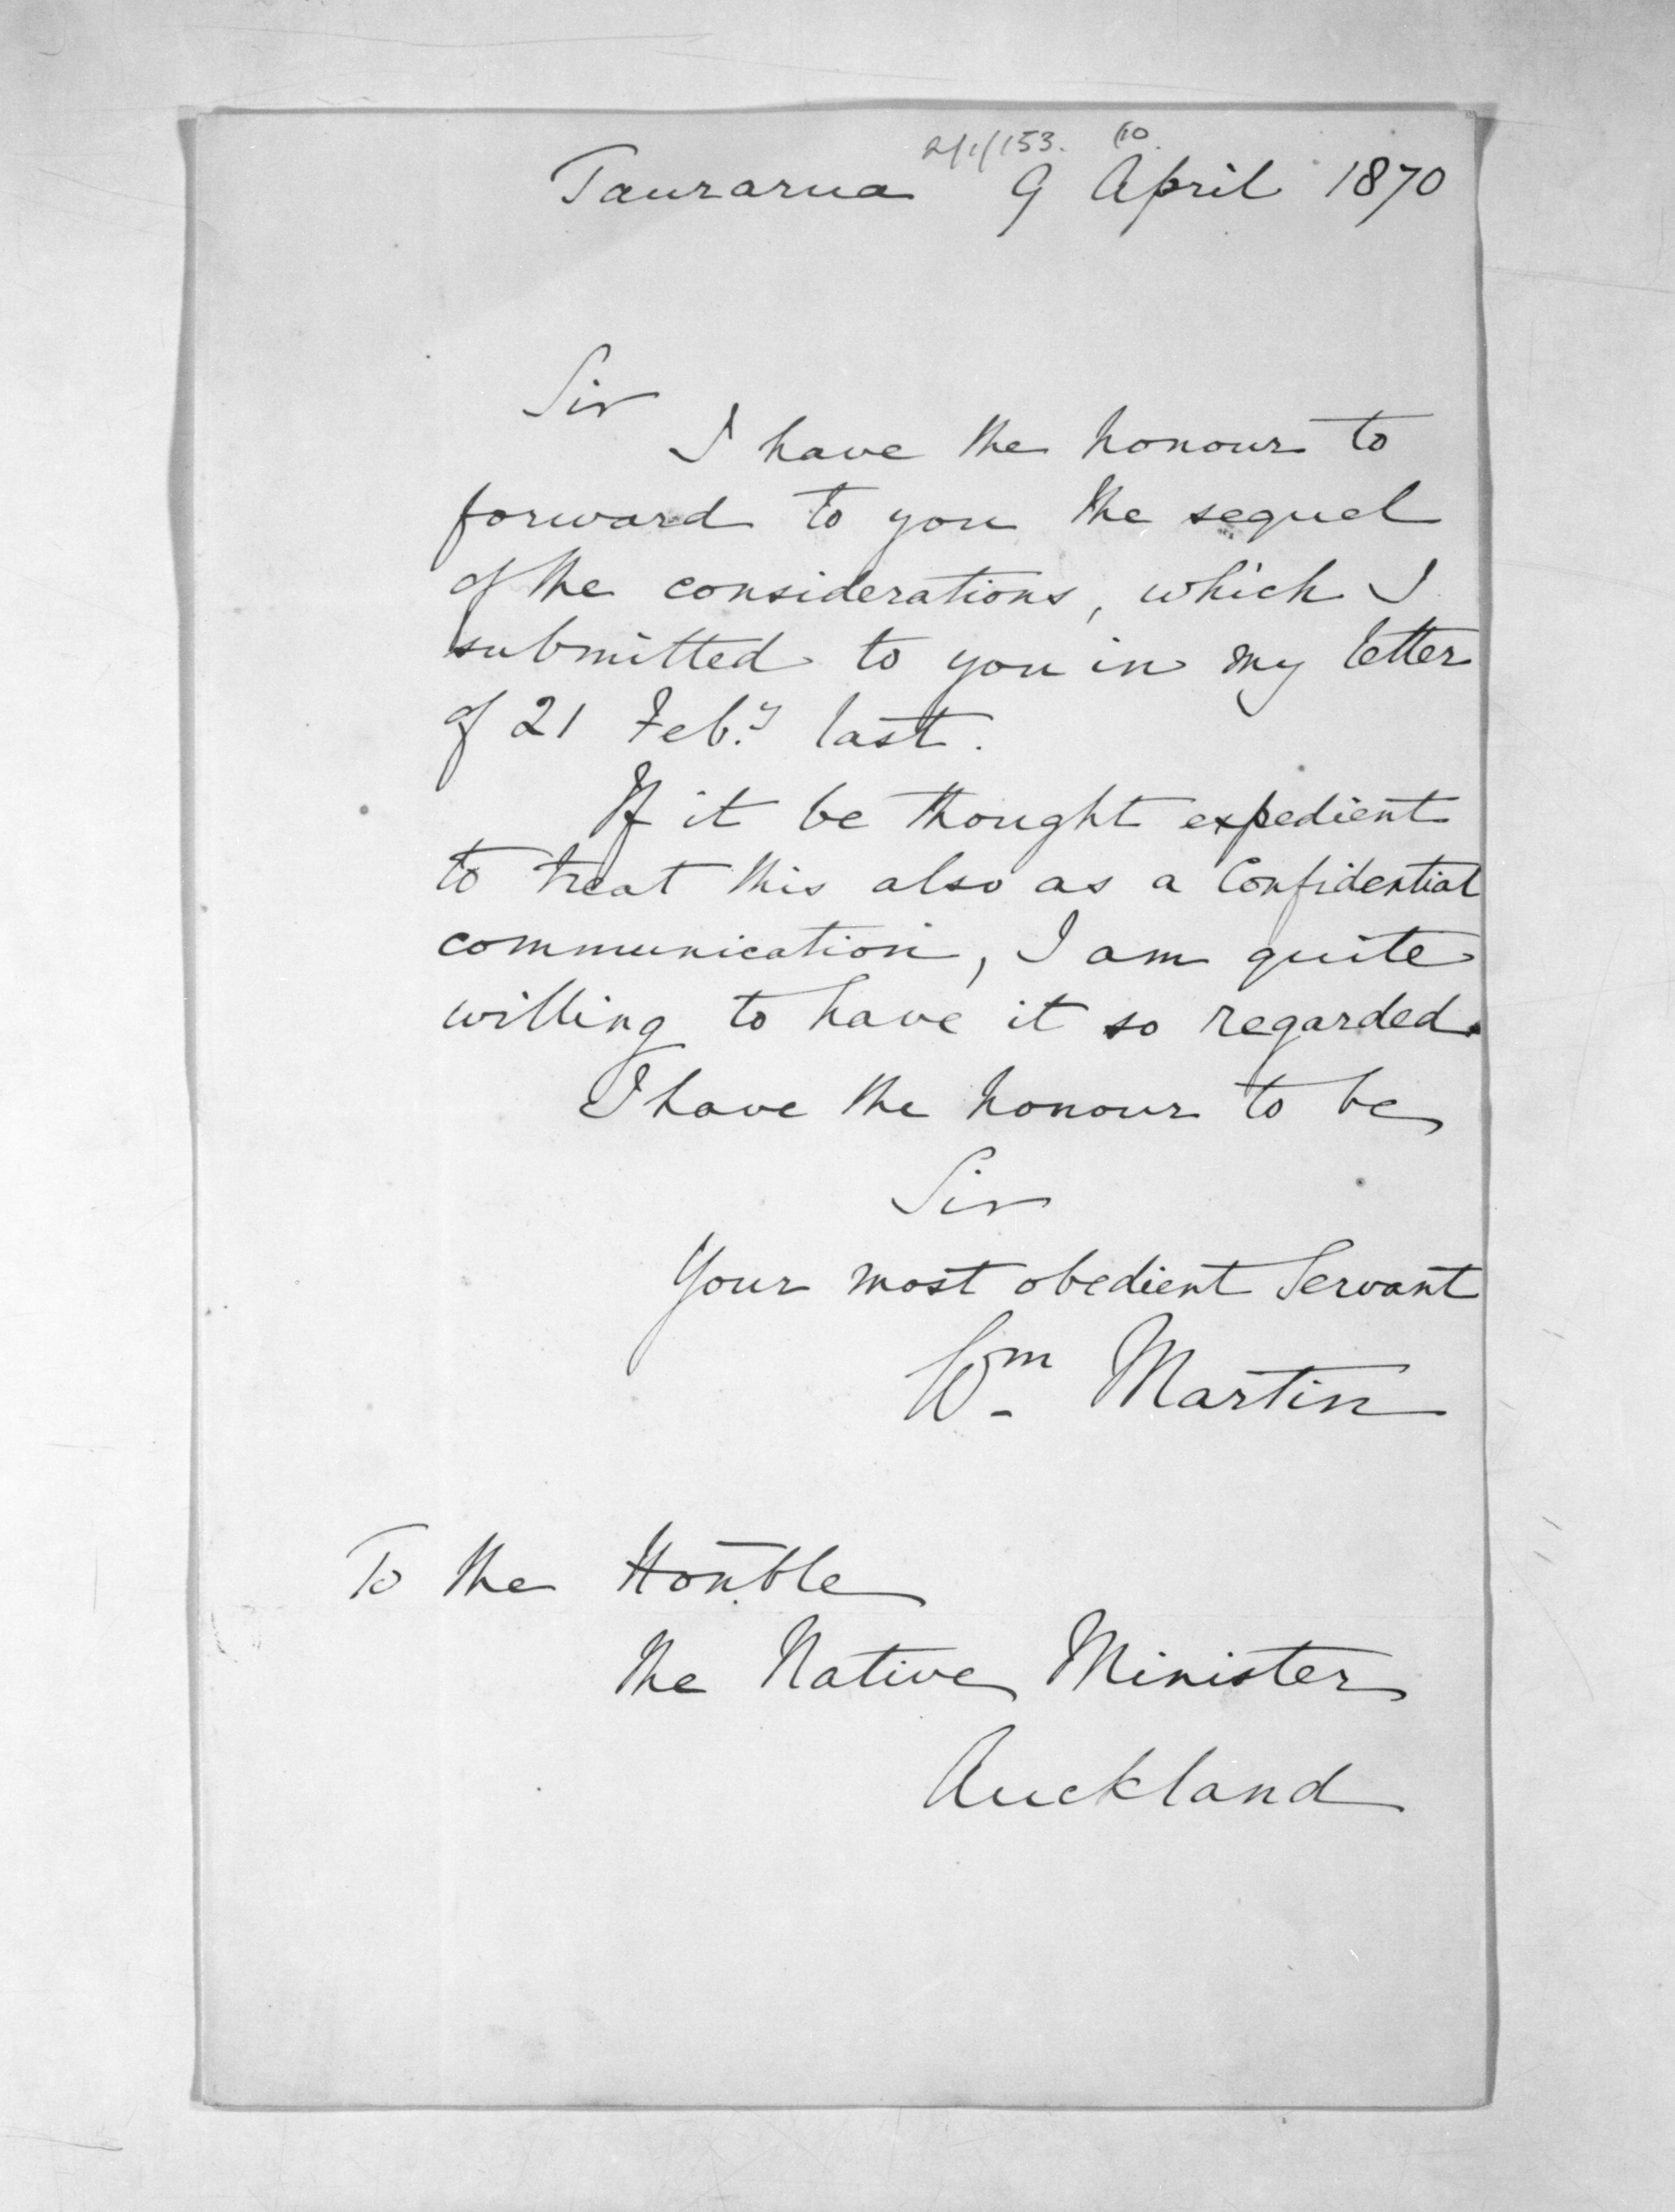 2/1/153. 60.
Taurarua 9 April 1870
Sir
I have the honour to
forward to you the sequel
of the considerations, which I
submitted to you in my letter
of 21 Feb.y last.
If it be thought expedient
to treat this also as a Confidential
communication, I am quite
willing to have it so regarded.
I have the honour to be
Sir
Your most obedient Servant
Wm Martin
To the Honble
the Native Minister
Auckland